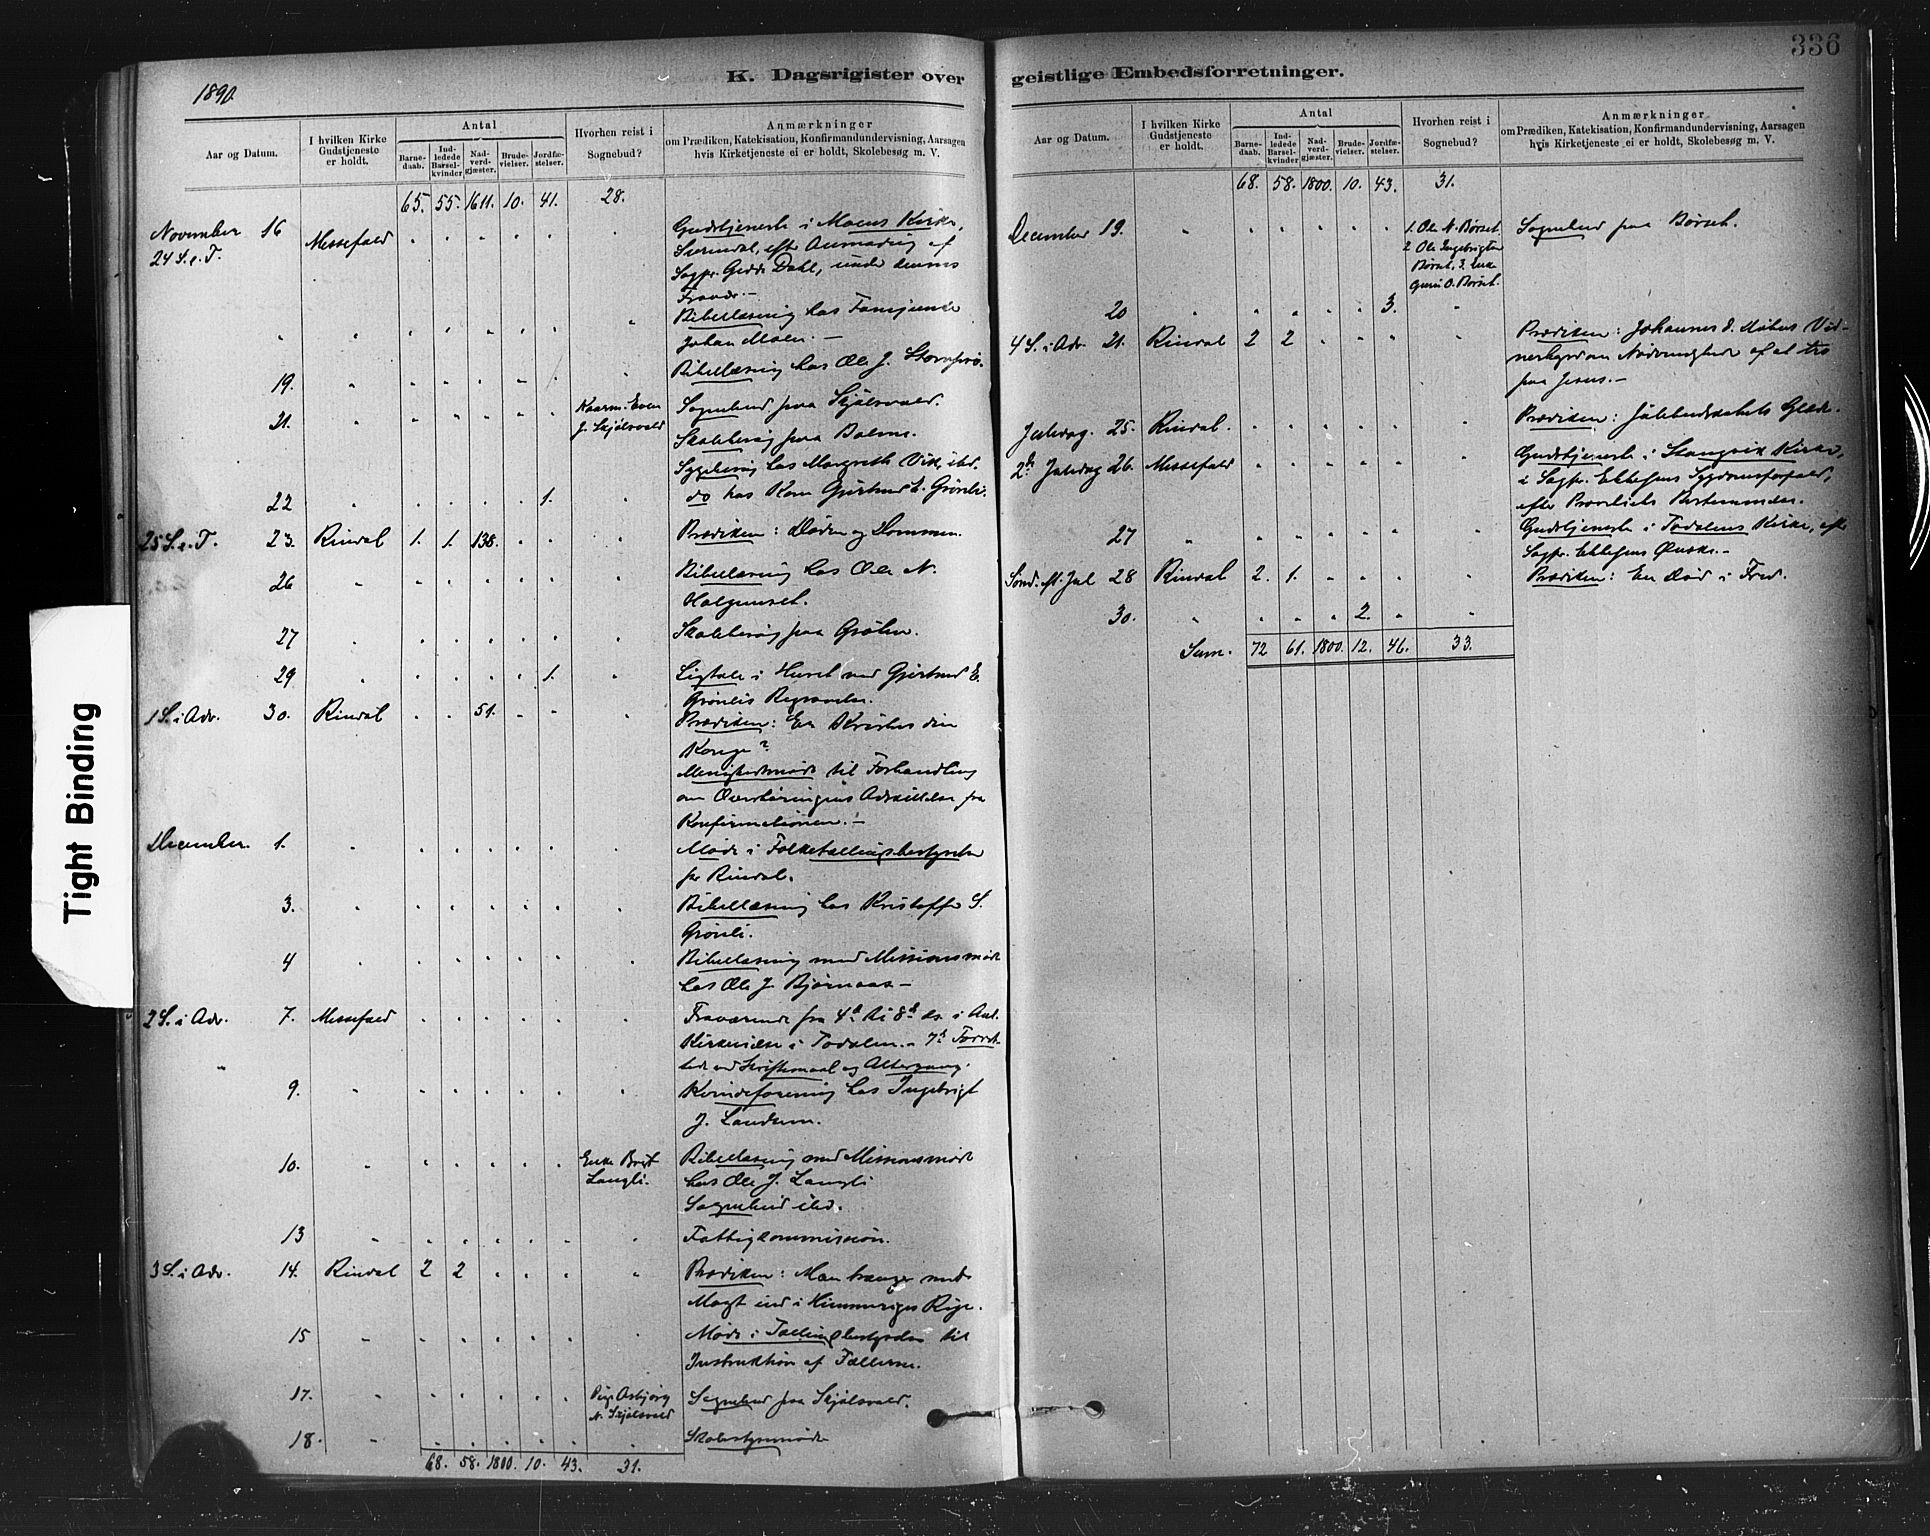 336
K. Dagsrigister over geistlige Embedsforretninger.
1890.
Aar og Datum. I hvilken Kirke Gudstjeneste er holdt. Antal Hvorhen reist i Sognebud? Anmærkninger
Barnedaab. Indledede Barselkvinder Nadverdgjæster. Brudevielser. Jordfæstelser. om Prædiken, Katekisation, Konfirmandundervisning, Aarsagen hvis Kirketjeneste ei er holdt, Skolebesøg m. V.
65. 55. 1611. 10. 41. 28.
November 16 Messefald " " " " " Gudstjeneste i Moens Kirke,
24 S. e. T. Surendal, efter Anmodning af
Sogpr. Gedde Dahl, under dennes
Fravær.—
" " " " " " " " Bibellæsning hos
Johan Moen.—
19. " " " " " " " Bibellæsning hos Ole J.
21. " " " " " " Kaarm. Even Sognebud paa Skjølsvold.
J. Skjølsvold Skolebesøg paa Bolme.
Sygebesøg hos Margreth Vik, ibd.
22 " " " " " 1. " do hos Kone Gjertrud L. Grönli.
25 S. e. T. 23. Rindal 1. 1. 138. " " " Prædiken: Døden og Dommen.
26 " " " " " " " Bibellæsning hos Ole N.
Halgunset.
27 " " " " " " " Skolebesøg paa
29 " " " " " 1. " Ligtale i Huset ved Gjertrud E.
Grönlis Begravelse.
1 S. i Adv. 30. Rindal " " 51. " " " Prædiken: Er Kristus din
Konge?
Menighedsmøde til Forhandling
om Overhøringens Adskillelse fra
Konfirmationen.—
December. 1. " " " " " " " Møde i Folketællingsbestyrelse
for Rindal.
3. " " " " " " " Bibellæsning hos Kristoffer S.
Grönli.
4 " " " " " " " Bibellæsning med Missionsmøde
hos Ole J. Bjørnaas—
2 S. i Adv. 7. Messefald " " " " " " Fraværende fra 4de til 8de ds. i Anl.
Kirkevielse i Todalen.— 7de
ved Skriftemaal og Altergang.
9. " " " " " " " Kvindeforening hos Ingebrigt
J. Landsem.
10. " " " " " " Enke Brit Bibellæsning med Missionsmøde
Langli. hos Ole J. Langli
Sognebud ibd.
13 " " " " " " " Fattigkommission.
3 S. i Adv. 14. Rindal 2 2 " " " " Prædiken: Man trænger med
Magt ind i Himmeriges Rige.
15 " " " " " " " Møde i Tællingsbestyrelsen til
Instruktion af Tællerne.
17. " " " " " " Pige Asbjørg Sognebud paa Skjølsvold.
N. Skjølsvold
18. " " " " " " " Skolestyremøde
68. 58. 1800. 10. 43. 31.
Aar og Datum. I hvilken Kirke Gudstjeneste er holdt. Antal Hvorhen reist i Sognebud? Anmærkninger
Barnedaab. Indledede Barselkvinder Nadverdgjæster. Brudevielser. Jordfæstelser. om Prædiken, Katekisation, Konfirmandundervisning, Aarsagen hvis Kirketjeneste ei er holdt, Skolebesøg m. V.
68. 58. 1800. 10. 43. 31.
December 19. " " " " " " 1. Ole N. Børset Sognebud paa Børset.
2 Ole Ingebrigtsen
Børset, 3. Enke
Guru O. Børset.
20 " " " " " 3. "
4 S. i Adv. 21. Rindal 2 2 " " " " Prædiken: Johannes d. Døbers Vidnesbyrd
om Nødvendighed af at tro
paa Jesus.—
Juledag. 25. Rindal. " " " " " " Prædiken: Julebudskabets Glæde.
2den Juledag 26. Messefald " " " " " " Gudstjeneste i Stangvik Kirke,
i Sogpr. Ebbesens Sygdomsforfald,
efter Provstiets Bestemmelse.
27 " " " " " " " Gudstjeneste i Todalens Kirke, efter
Sogpr. Ebbesens Ønske.—
Sønd. ml. Jul 28 Rindal 2. 1. " " " " Prædiken: En Død i Fred.
30. " " " " 2. " "
Sum. 72 61. 1800. 12. 46. 33.
Tight Binding